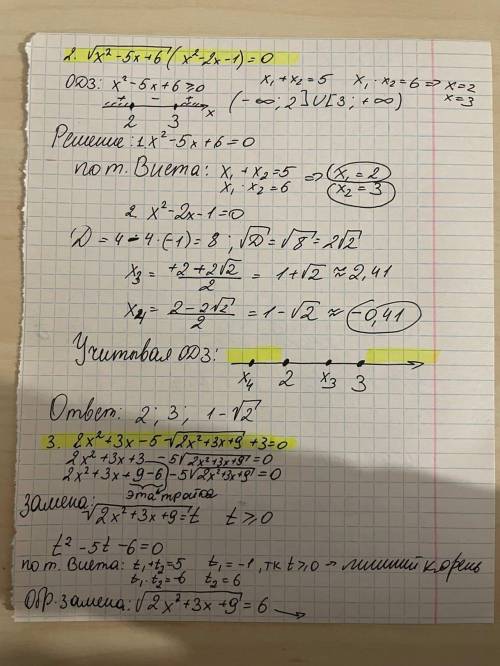 2. √(x²-5x+6) (x²-2x-1)=0
ОДЗ: x²-5x+6≥0 x₁+x₂=5 x₁·x₂=6 ⇒ x=2
x=3
+ - + x (-∞; 2]∪[3; +∞)
2 3
Решение: 1. x²-5x+6=0
по т. Виета: x₁+x₂=5 ⇒ x₁=2
x₁·x₂=6 x₂=3
2. x²-2x-1=0
D=4-4·(-1)=8; √D=√8=2√2
x₃=(+2+2√2)/2=1+√2≈2,41
x₄=(2-2√2)/2=1-√2≈-0,41
Учитывая ОДЗ:
x₄ 2 x₃ 3
Ответ: 2; 3; 1-√2
3. 2x²+3x-5√(2x²+3x+9)+3=0
2x²+3x+3-5√(2x²+3x+9)=0
2x²+3x+9-6-5√(2x²+3x+9)=0
эта тройка
Замена:
√(2x²+3x+9)=t t≥0
t²-5t-6=0
по т. Виета: t₁+t₂=5, t₁=-1, тк t≥0 → лишний корень
t₁·t₂=-6 t₂=6
Обр. замена: √(2x²+3x+9)=6 →